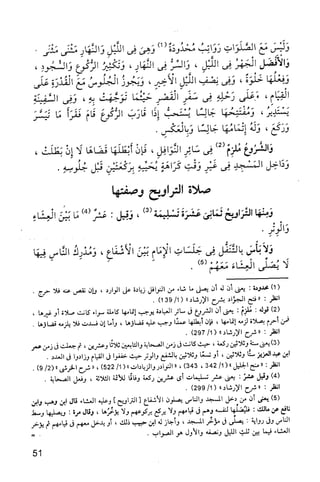 وَلَيْسَ مَعَ الصَّلَوَاتِ رَوَاتِبُ مَحْدُودَةٌ (1) وَهِىَ فِى اللَّيْلِ وَالنَّهَارِ مَثْنَى مَثْنَى .
وَالأَفْضَلُ الْجَهْرُ فِى اللَّيْلِ ، وَالسِّرُّ فِى النَّهَارِ ، وَتَكْثِيرُ الرُّكُوعِ وَالسُّجُودِ ،
وَفِعْلُهَا خَلْوَةً ، وَفِى نِصْفِ اللَّيْلِ الأَخِيرِ ، وَيَجُوزُ الْجُلُوسُ مَعَ الْقُدْرَةِ عَلَى
الْقِيَامِ ، وَعَلَى رَحْلِهِ فِى سَفَرِ الْقَصْرِ حَيْثُمَا تَوَجَّهَتْ بِهِ ، وَفِى السَّفِينَةِ
يَسْتَدِيرُ ، وَمُفْتَتِحُهَا جَالِسًا يُسْتَحَبُّ إِذَا قَارَبَ الرُّكُوعَ قَامَ فَقَرَأَ مَا تَيَسَّرَ
وَرَكَعَ ، وَلَهُ إِتْمَامُهَا جَالِسًا وَبِالْعَكْسِ .
وَالشُّرُوعُ مُلْزِمٌ (2) فِى سَائِرِ النَّوَافِلِ ، فَإِنْ أَبْطَلَهَا قَضَاهَا لَا إِنْ بَطَلَتْ ،
وَدَاخِلُ الْمَسْجِدِ فِى غَيْرِ وَقْتِ كَرَاهَةٍ يُحَيِّيهِ بِرَكْعَتَيْنِ قَبْلَ جُلُوسِهِ .
صلاة التراويح وصفتها
وَمِنْهَا التَّرَاوِيحُ ثَمَانِى عَشْرَةَ تَسْلِيمَةً (3) ، وَقِيلَ : عَشْرٌ (4) مَا بَيْنَ الْعِشَاءِ
وَالْوِتْرِ .
وَلَا بَأْسَ بِالتَّنَفُّلِ فِى جَلَسَاتِ الإِمَامِ بَيْنَ الأَشْفَاعِ ، وَمُدْرِكُ النَّاسِ فِيهَا
لَا يُصَلِّى الْعِشَاءَ مَعَهُمْ (5) .
(1) محدودة : يعنى أن له أن يصل ما شاء من النوافل زيادة على الوارد ، وإن نقص عنه فلا حرج .
انظر : « فتح الجواد بشرح الإرشاد » (1/ 139) .
(2) قوله : مُلْزِمٌ : يعنى أن الشروع فى سائر العبادة يوجب إتمامها كاملة سواء كانت صلاة أو غيرها ،
فمن أحرم بصلاة لزمه إتمامها ، فإن أبطلها عمدًا وجب عليه قضاؤها ، وأما إن فسدت فلا يلزمه قضاؤها .
انظر : « شرح الإرشاد » (1/ 297) .
(3) يعنى ستة وثلاثين ركعة ، حيث كانت فى زمن الصحابة والتابعين ثلاثًا وعشرين ، ثم جعلت فى زمن عمر
ابن عبد العزيز ستًّا وثلاثين ، أو تسعًا وثلاثين بالشفع والوتر حيث خففوا فى القيام وزادوا فى العدد .
انظر : « منح الجليل » (1/ 342 ، 343) ، « النوادر والزيادات » (1/ 522) ، « شرح الخرشى » (2/ 9) .
(4) وقيل عشر : يعنى عشر تسليمات أى عشرين ركعة وفاقًا للأئمة الثلاثة ، وفعل الصحابة .
انظر : « شرح الإرشاد » (1/ 299) .
(5) يعنى أن من دخل المسجد والناس يصلون الأشفاع [ التراويح ] وعليه العشاء قال ابن وهب وابن
نافع عن مالك : فليصلها لنفسه وهم فى قيامهم ولا يركع بركوعهم ولا يؤخرها ، وقال مرة : ويصليها وسط
الناس وفى رواية : يصلى فى مؤخر المسجد ، وأجاز له ابن حبيب ذلك ، أو يدخل معهم فى قيامهم ثم يؤخر
العشاء فيما بين ثلث الليل ونصفه والأول هو الصواب . =
51